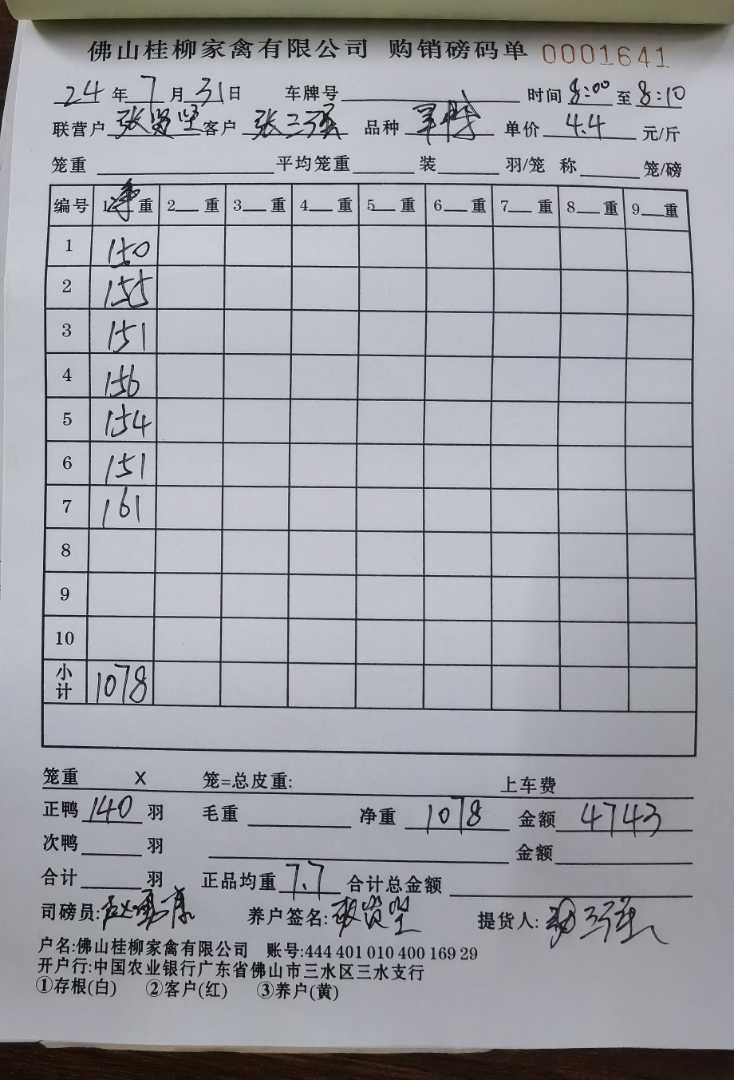 佛山桂柳家禽有限公司 购销磅码单 0001641
24年7月31日 车牌号 时间8:00至8:10
联营户张贤坚客户张三强 品种 单价4.4元/斤
笼重 平均笼重 装 羽/笼 称 笼/磅
编号 1净重 2重 3重 4重 5重 6重 7重 8重 9重
1 150
2 155
3 151
4 156
5 154
6 151
7 161
8
9
10
小计 1078
笼重 X 笼=总皮重: 上车费
正鸭140羽 毛重 净重1078 金额4743
次鸭 羽 金额
合计 羽 正品均重7.7合计总金额
司磅员: 养户签名:张贤坚 提货人:张三强
户名:佛山桂柳家禽有限公司 账号:444 401 010 400 169 29
开户行:中国农业银行广东省佛山市三水区三水支行
①存根(白) ②客户(红) ③养户(黄)